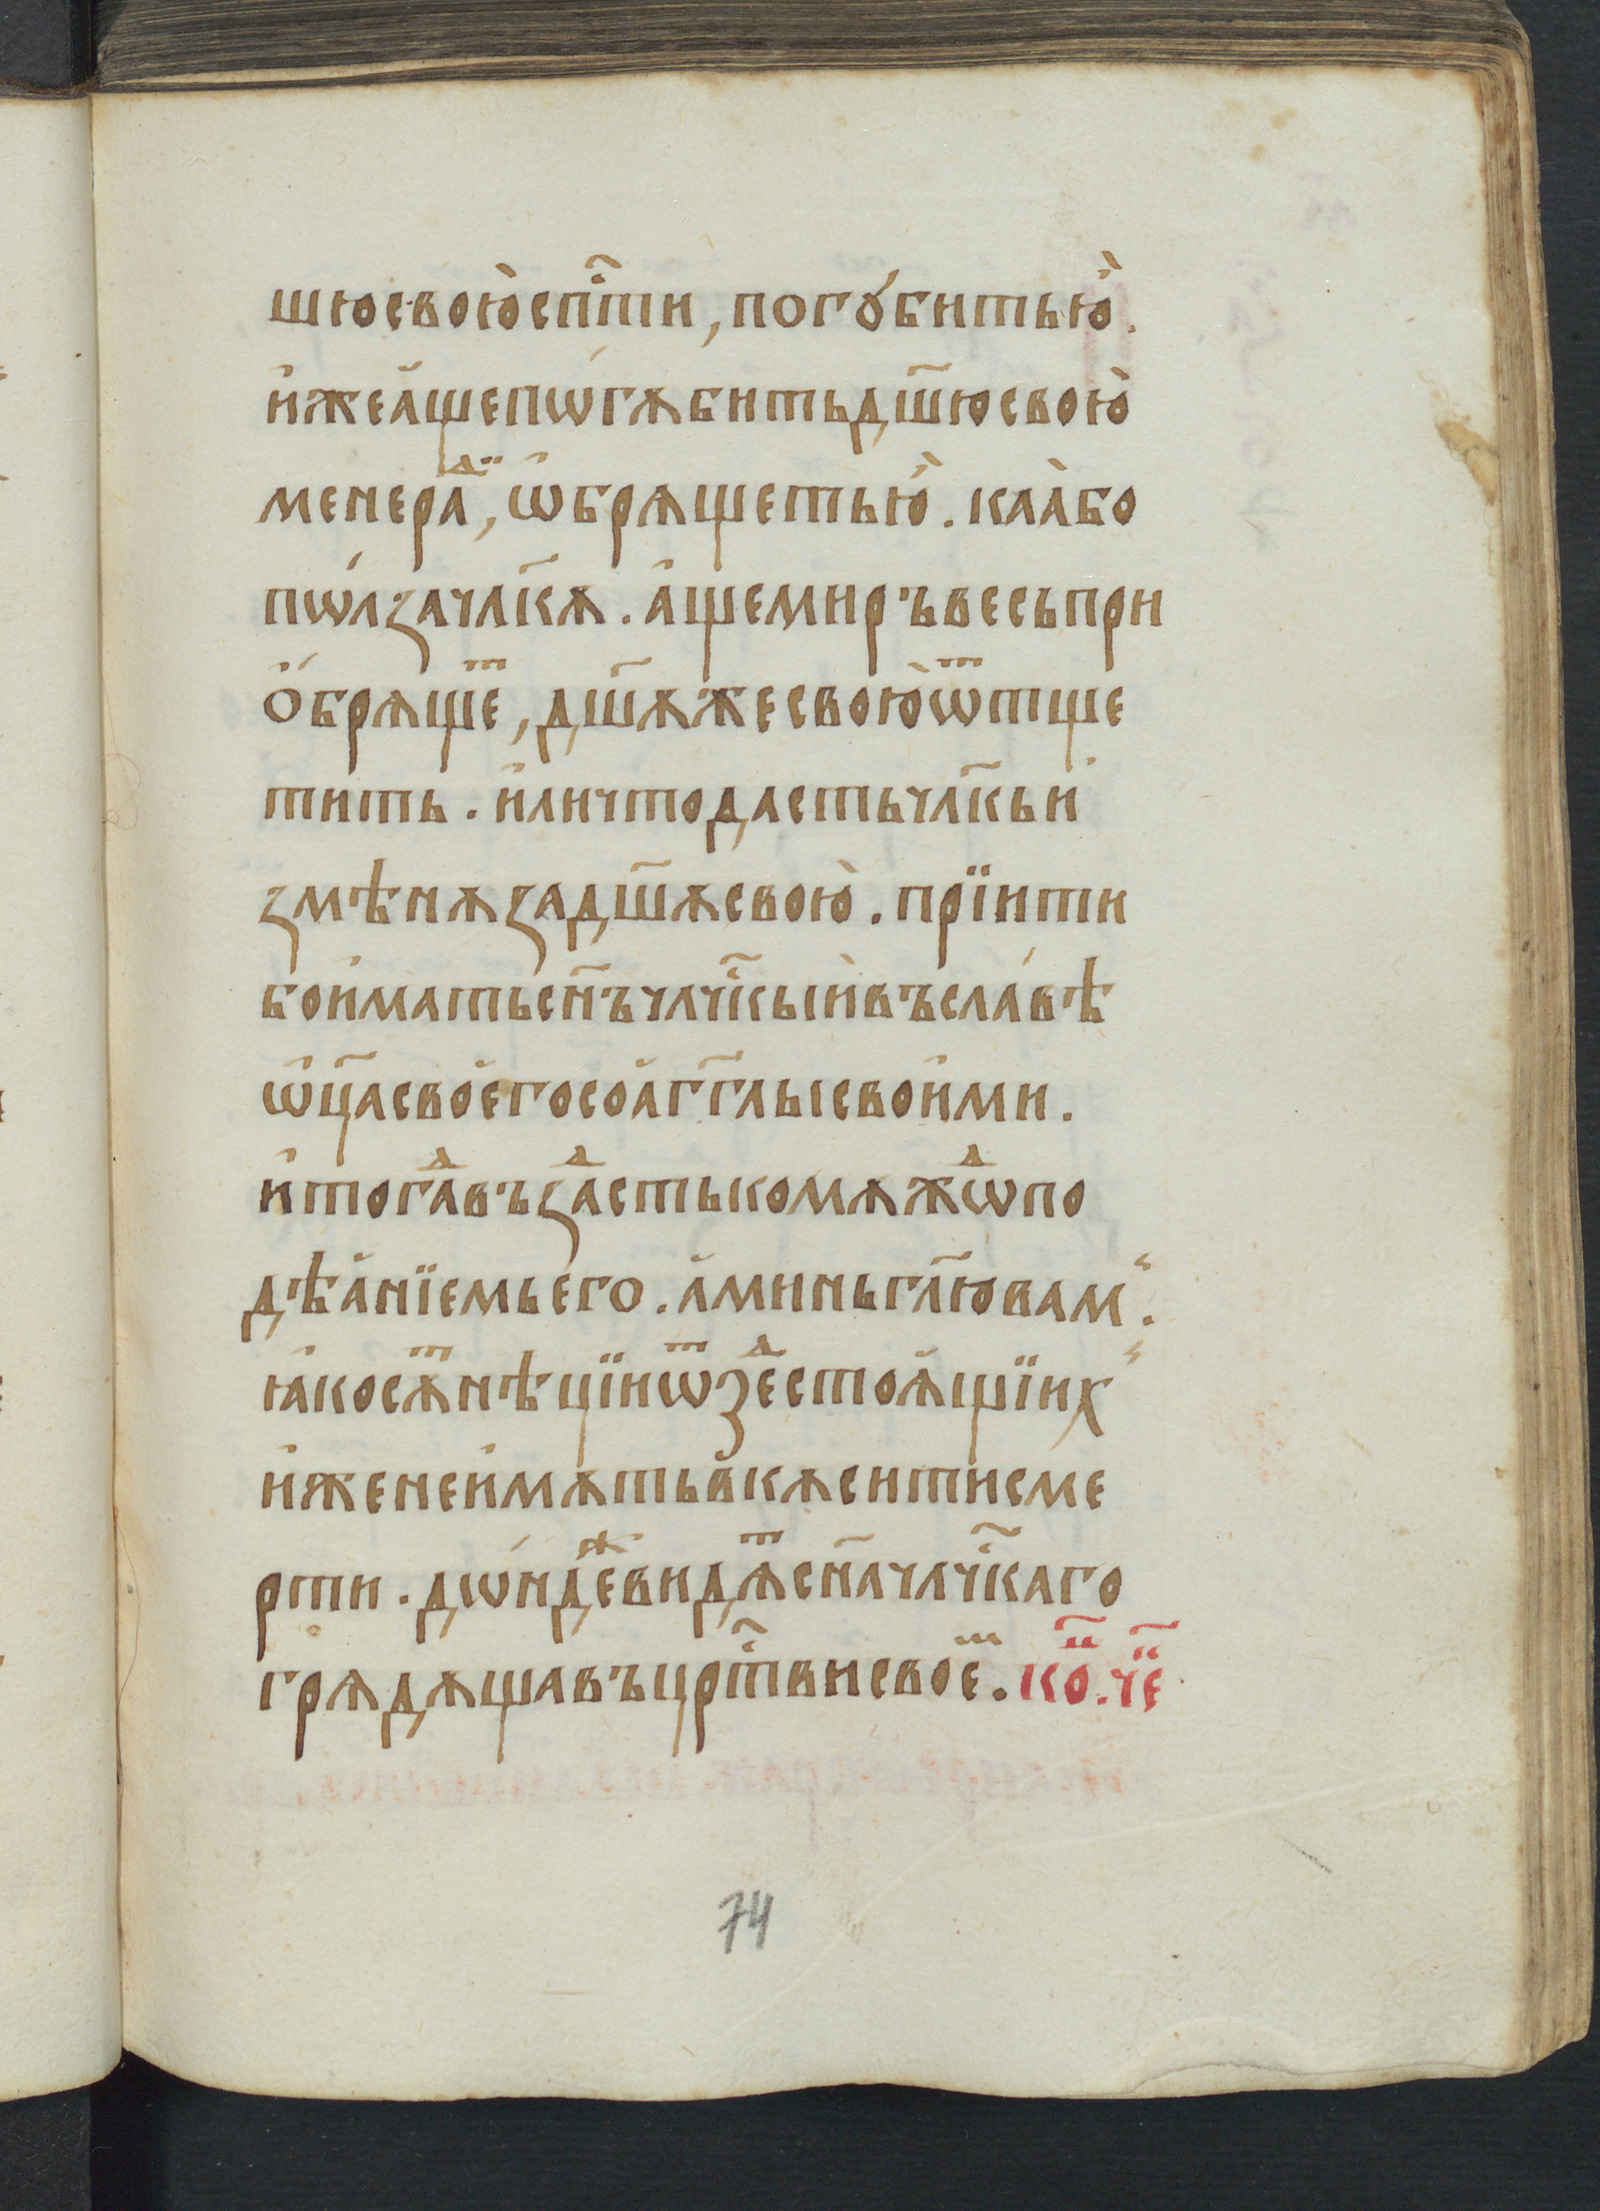 шюсвою̀спс҃ти, погꙋ́битью̀.
и҆жеа҆щепѡ́гѫбитьдш҃юсвою̀
менераⷣи, ѡ҆брѧщетью̀. каꙗбо
пѡ́лꙁачл҃кѫ. а҆щемиръвесьпри
ѻ́брѧщеⷮ, дш҃ѫжесвою̀ѿтще
тить. и҆личтодастьчл҃кьи
ꙁмѣнѫꙁадш҃ѫсвою̀. прїити
бои҆матьсн҃ъчл҃чⷭ҇кыи҆въсла́вѣ
ѡ҆ц҃асвоегосоа҆гг҃лысвои҆ми.
и҆тогаⷣвъꙁаⷣстькомѫжⷣѡпо
дѣа҆нїемьего. а҆миньгл҃ювам.
ꙗ҆косѫⷮнѣцїиѿꙁеⷣстоѧ҆щїих
и҆женеи҆мѫтьвкѫситисме
рти. дѡ́ндеⷤвидѧⷮсн҃ачл҃чⷭ҇каго
грѧдѫщавъцр҃твисвоеⷨ. ко҃.че҃
74